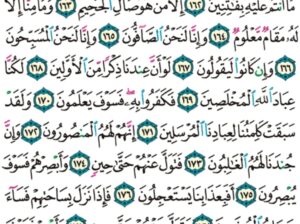 مَآ أَنتُمْ عَلَيْهِ بِفَٰتِنِينَ ١٦٢ إِلَّا مَنْ هُوَ صَالِ ٱلْجَحِيمِ ١٦٣ وَمَا مِنَّآ إِلَّا
لَهُۥ مَقَامٌ مَّعْلُومٌ ١٦٤ وَإِنَّا لَنَحْنُ ٱلصَّآفُّونَ ١٦٥ وَإِنَّا لَنَحْنُ ٱلْمُسَبِّحُونَ
١٦٦ وَإِن كَانُوا۟ لَيَقُولُونَ ١٦٧ لَوْ أَنَّ عِندَنَا ذِكْرًا مِّنَ ٱلْأَوَّلِينَ ١٦٨ لَكُنَّا
عِبَادَ ٱللَّهِ ٱلْمُخْلَصِينَ ١٦٩ فَكَفَرُوا۟ بِهِۦ فَسَوْفَ يَعْلَمُونَ ١٧٠ وَلَقَدْ
سَبَقَتْ كَلِمَتُنَا لِعِبَادِنَا ٱلْمُرْسَلِينَ ١٧١ إِنَّهُمْ لَهُمُ ٱلْمَنصُورُونَ ١٧٢ وَإِنَّ
جُندَنَا لَهُمُ ٱلْغَٰلِبُونَ ١٧٣ فَتَوَلَّ عَنْهُمْ حَتَّىٰ حِينٍ ١٧٤ وَأَبْصِرْهُمْ فَسَوْفَ
يُبْصِرُونَ ١٧٥ أَفَبِعَذَابِنَا يَسْتَعْجِلُونَ ١٧٦ فَإِذَا نَزَلَ بِسَاحَتِهِمْ فَسَآءَ